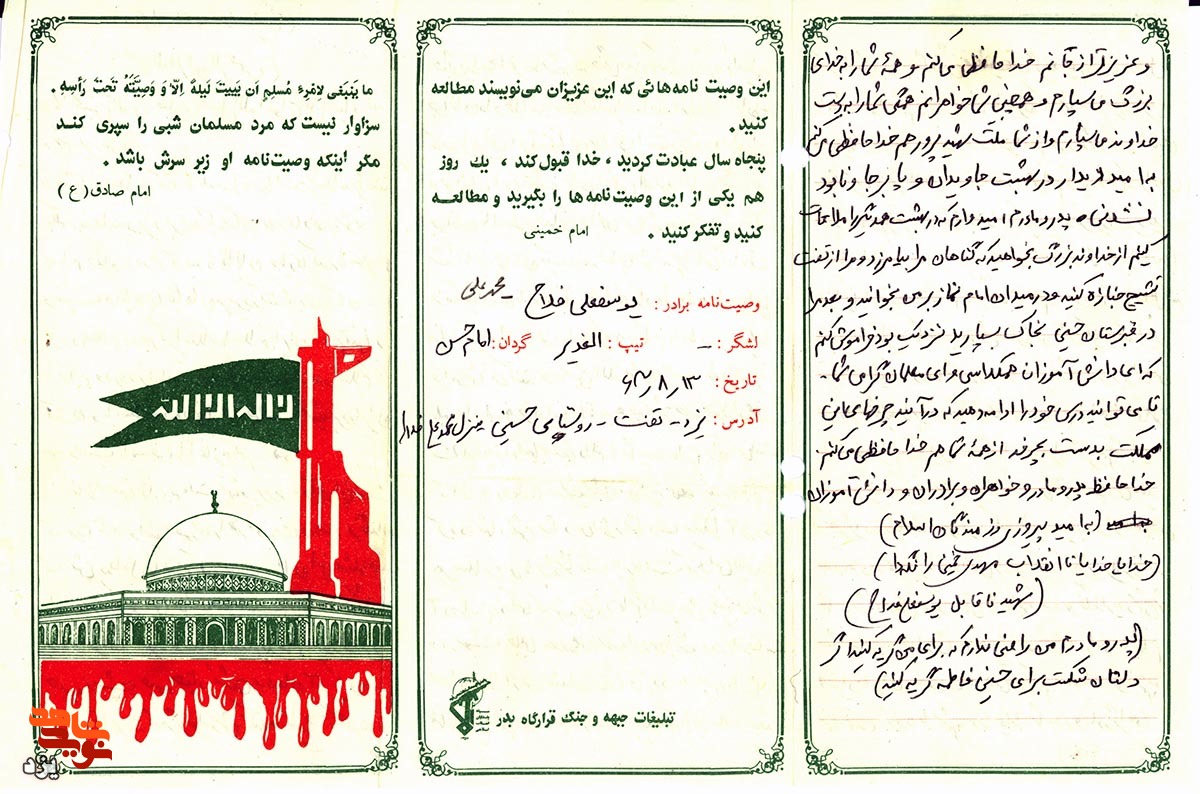 و عزیزتر از جانم خدا حافظی می‌کنم و همهٔ شما را به خدای
بزرگ می‌سپارم و همچنین شما خواهرانم همگی شما را به
خداوند می‌سپارم و از شما ملت شهید پرور هم خدا حافظی می‌کنم
به امید دیدار در بهشت جاویدان و پا برجا و نابود
نشدنی. پدر و مادرم امیدوارم که در بهشت همدیگر را ملاقات
کنیم از خداوند بزرگ بخواهید که گناهان مرا بیامرزد و مرا از تفت
تشییع جنازه کنید و در میدان امام نماز بر من بخوانید و بعد مرا
در قبرستان حسینی بخاک بسپارید نزدیک بود فراموش کنم
که ای دانش آموزان همکلاسی و ای معلمان گرامی شما
تا می‌توانید درس خود را ادامه دهید که در آینده چرخهای این
مملکت بدست بچرخد از همهٔ شما هم خدا حافظی می‌کنم.
خدا حافظ پدر و مادر و خواهران و برادران و دانش آموزان
(به امید پیروزی رزمندگان اسلام)
(خدایا خدایا تا انقلاب مهدی خمینی را نگهدار)
(شهید ناقابل یوسفعلی فلاح)
(پدر و مادرم من راضی ندارم که برای من گریه کنید اگر
دلتان شکست برای حسین فاطمه گریه کنید)
این وصیت نامه‌هائی که این عزیزان می‌نویسند مطالعه
کنید.
پنجاه سال عبادت کردید، خدا قبول کند، یك روز
هم یکی از این وصیت‌نامه‌ها را بگیرید و مطالعه
کنید و تفکر کنید.
امام خمینی
وصیت‌نامه برادر: یوسفعلی فلاح محمدعلی
لشگر: – تیپ: الغدیر گردان: امام حسن
تاریخ: ۶۳/۸/۱۳
آدرس: یزد - تفت - روستای حسینی منزل محمد علی فلاح
تبلیغات جبهه و جنگ قرارگاه بدر
ما يَنبَغى لِامْرِءٍ مُسلِمٍ اَن يَبيتَ لَيلَةً اِلّا وَ وَصِيَّتُهُ تَحتَ رَأسِهِ.
سزاوار نیست که مرد مسلمان شبی را سپری کند
مگر اینکه وصیت‌نامه او زیر سرش باشد.
امام صادق (ع)
لا اله الا الله
نوید شاهد